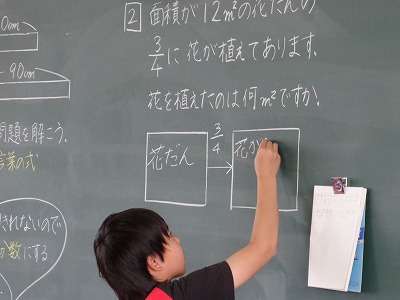 0cm
90cm
問題を解こう。
言葉の式
されないので
か数にする
2 面積が12m²の花だんの
3/4に花が植えてあります。
花を植えたのは何m²ですか。
花だん
3/4
花が